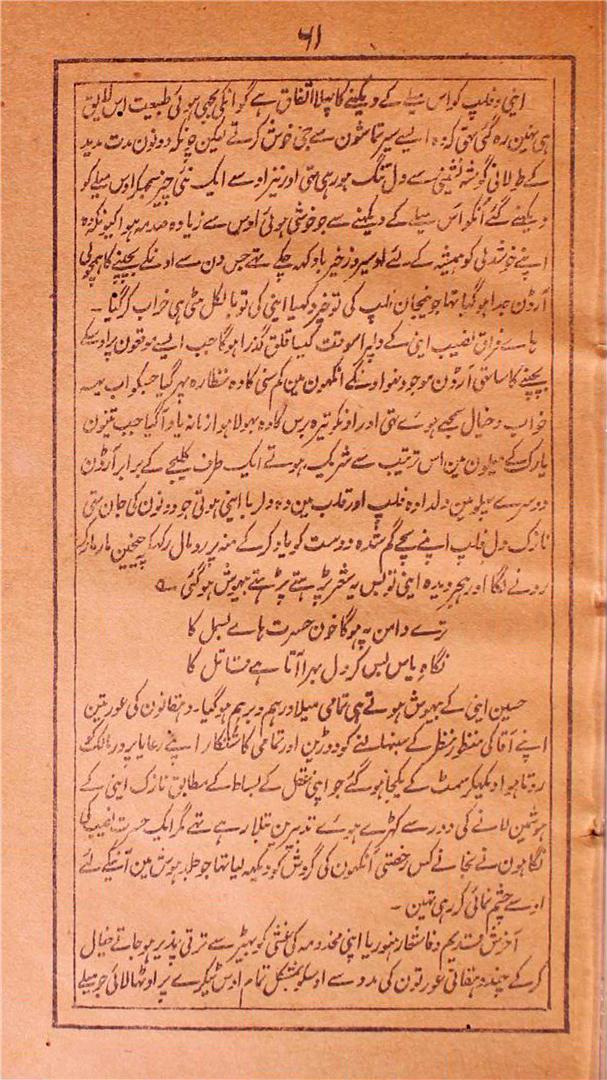 ۶۱
اینی و فلپ کو اس میلے کے دیکہنے کا پہلا اتفاق ہے گو انکی بجھی ہوئی طبیعت اس لایق
ہی نہین رہ گئی تہی کہ وہ ایسے سیر تماشون سے جی خوش کرتے لیکن چونکہ دونون مدت مدید
کے طولانی گوشہ نشینی سے دل تنگ ہو رہی تہی اور نیز اوسے ایک نئی چیز سمجہکر اوس میلے کو
دیکہنے گئے اُنکو اس میلے کے دیکہنے سے جو خوشی ہوئی اوس سے زیادہ صدمہ ہوا کیونکہ وہ
اپنے خوشدلی کو ہمیشہ کے لئے اوسیروز خیرباد کہہ چکے تہے جس دن سے اونکے بچپنے کا ہمجولی
آرڈن جدا ہو گیا تہا جو نجان فلپ کی تو خیر دکہیا اینی کی تو بالکل مٹی ہی خراب کر گیا ۔
ہاے فراق نصیب اینی کے دلپر اسوقت کیسا قلق گذرا ہوگا جب ایسے موقعون پر اوسکے
بچپنے کا ساتہی آرڈن موجود نہو اونکے انکہون مین کم سنی کا وہ نظارہ پہر گیا جسکو اب یہہ
خواب و خیال سمجہے ہوے تہی اور اونکو تیرہ برس کا وہ بہولا ہوا زمانہ یاد آگیا جب تینون
پارک کے میلون مین اس ترتیب سے شریک ہوتے ایک طرف کلیجے کے برابر آرڈن
دوسرے پہلو مین دلدادہ فلپ اور قلب مین وہ دلربا اینی ہوتی جو دونون کی جان تہی
نازک دل فلپ اپنے بچے گم شدہ دوست کو یاد کرکے منہ پر رومال رکہہ کر چیخین مار مار کر
رونے لگا اور ہجر دیدہ اینی تو بس یہ شعر پڑہتے پڑہتے بیہوش ہو گئی ۔
ترے دامن پہ ہوگا خون حسرت ہاے بسمل کا
نگاہ یاس بس کر دل بہرا آتا ہے قاتل کا
حسین اینی کے بیہوش ہوتے ہی تمامی میلا درہم و برہم ہو گیا ۔ دہقانون کی عورتین
اپنے آقا کی منظور نظر کے سنبہالنے کو دوڑین اور تمامی کاشتکار اپنے رعایا پرور مالک کو
روتا ہوا دیکہکر سمٹ کے یکجا ہو گئے جو اپنی عقل کے بساط کے مطابق نازک اینی کے
ہوشمین لانے کی دور سے کہڑے ہوے تدبیرین بتلا رہے تہے مگر ایک حسرت نصیب کی
نگاہون نے نجانے کس رخصتی آنکہون کی گردش کو دیکہہ لیا تہا جو جلد ہوش مین آنیکے لئے
اوسے چشم نمائی کر رہی تہین ۔
آخرش قدیم وفاشعار منوریا اپنی مخدومہ کی غشی کو بہیڑ سے ترقی پذیر ہو جاتے خیال
کرکے چند دہقانی عورتون کی مدد سے اوسکو بمشکل تمام اوس ٹیکرے پر اوٹہا لائی جو میلے